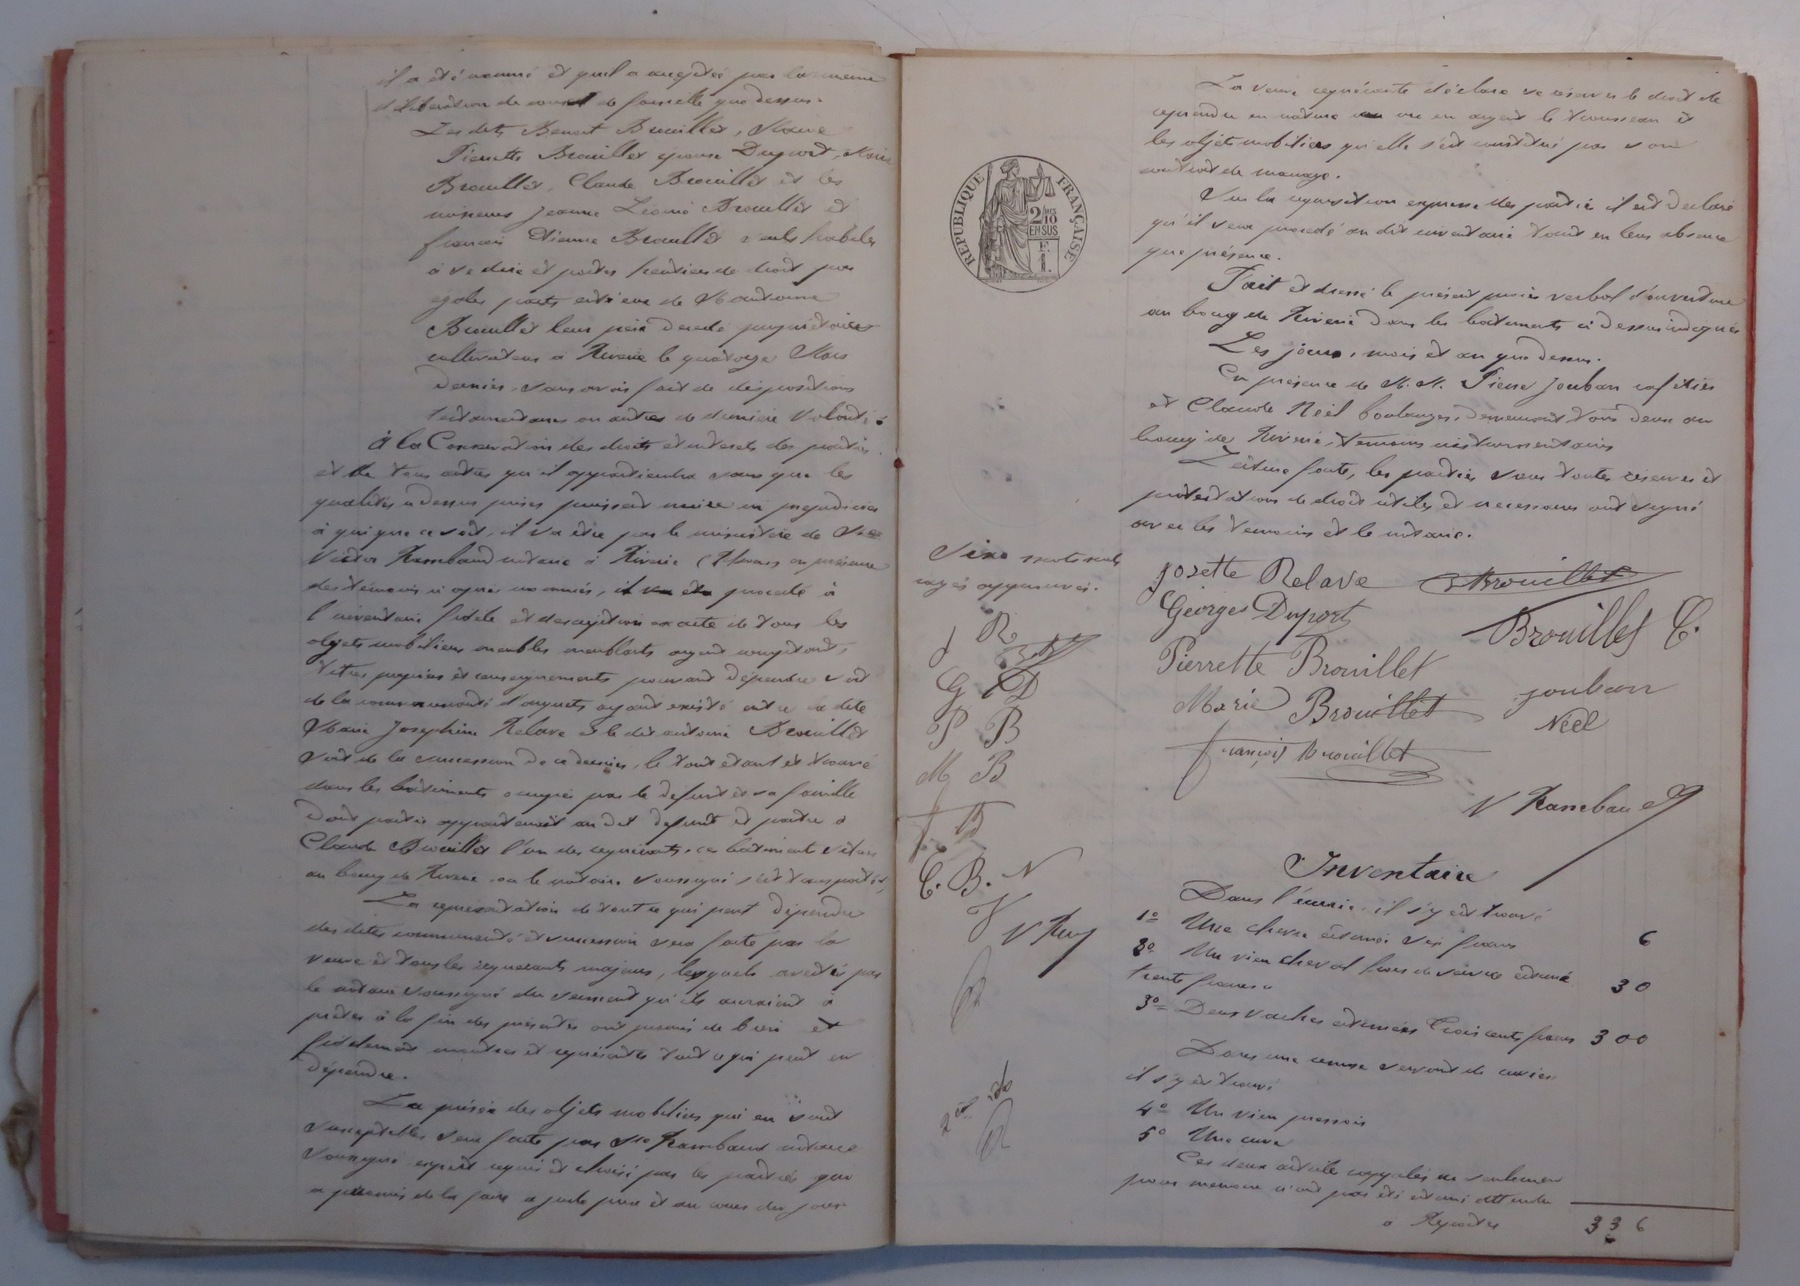 il a été nommé et qu'il a acceptée par la même
délibération du conseil de famille que dessus.
Les dits Benoit Brouillet, Marie
Pierrette Brouillet épouse Duport, Marie
Brouillet, Claude Brouillet et les
mineurs Jeanne Léonie Brouillet et
françois Etienne Brouillet seuls habiles
à se dire et porter héritiers de droit par
égales parts entre eux de Mr antoine
Brouillet leur père décédé propriétaire
cultivateur à Riverie le quatorze Mars
dernier, sans avoir fait de dispositions
testamentaires ou autres de dernière volonté
À la Conservation des droits et intérets des parties
et de tous autres qu'il appartiendra sans que les
qualités ci dessus prises puissent nuire ni préjudicier
à qui que ce soit, il va être par le ministère de Me
Victor Rambaud notaire à Riverie (Rhône) en présence
des témoins ci après nommés, il va être procédé à
l'inventaire fidèle et description exacte de tous les
objets mobiliers meubles meublants argent comptant,
titres papiers et renseignements pouvant dépendre soit
de la communauté d'acquets ayant existé entre la dite
Marie Joséphine Relave et le dit antoine Brouillet
soit de la succession de ce dernier, le tout étant et trouvé
dans les bâtiments occupés par le defunt et sa famille
dont partie appartenait au dit defunt et partie à
Claude Brouillet l'un des requérants, ces bâtiments situés
au bourg de Riverie où le notaire soussigné s'est transporté,
La représentation de tout ce qui peut dépendre
des dites communauté et succession sera faite par la
veuve et tous les requérants majeurs, lesquels avertis par
le notaire soussigné du serment qu'ils auraient à
prêter à la fin des présentes ont promis de bien et
fidèlement montrer et représenter tout ce qui peut en
dépendre.
La prisée des objets mobiliers qui en sont
susceptibles sera faite par Me Rambaud notaire
soussigné expert requis et choisi par les parties qui
a promis de la faire a juste prix et au cours du jour
La veuve requérante déclare se réserver le droit de
reprendre en nature ou en argent le trousseau et
les objets mobiliers qu'elle s'est constitué par son
contrat de mariage.
Sur la réquisition expresse des parties il est déclaré
qu'il sera procédé au dit inventaire tant en leur absence
que présence.
Fait et dressé le présent procès verbal d'ouverture
au bourg de Riverie dans les bâtiments ci dessus indiqués
Les jour, mois et an que dessus.
En présence de M.M. Pierre Jouban cafetier
et Claude Néel boulanger, demeurant tous deux au
bourg de Riverie, témoins instrumentaires
Lecture faite, les parties sous toutes réserves et
protestations de droit utiles et nécessaires ont signé
avec les témoins et le notaire.
RÉPUBLIQUE FRANÇAISE
2 DES 10
EN SUS
F.
1.
mots nuls
rayés approuvés.
J R
G D
P B
M B
f B
C. B. N
V Ramb
2eme rôle
Josette Relave Brouillet
Georges Duport
Brouillet C.
Pierrette Brouillet
Marie Brouillet
Jouban
Néel
françois Brouillet
V Rambaud
Inventaire
Dans l'écurie, il s'y est trouvé
1o Une chèvre estimée six francs 6
2o Un vieu cheval hors de service estimé
trente francs 30
3o Deux vaches estimées trois cents francs 300
Dans une remise servant de cuvier
il s'y est trouvé
4o Un vieu pressoir
5o Une cuve
Ces deux article rappelés ici seulement
pour mémoire n'ont pas été estimé attendu
a Reporter 336